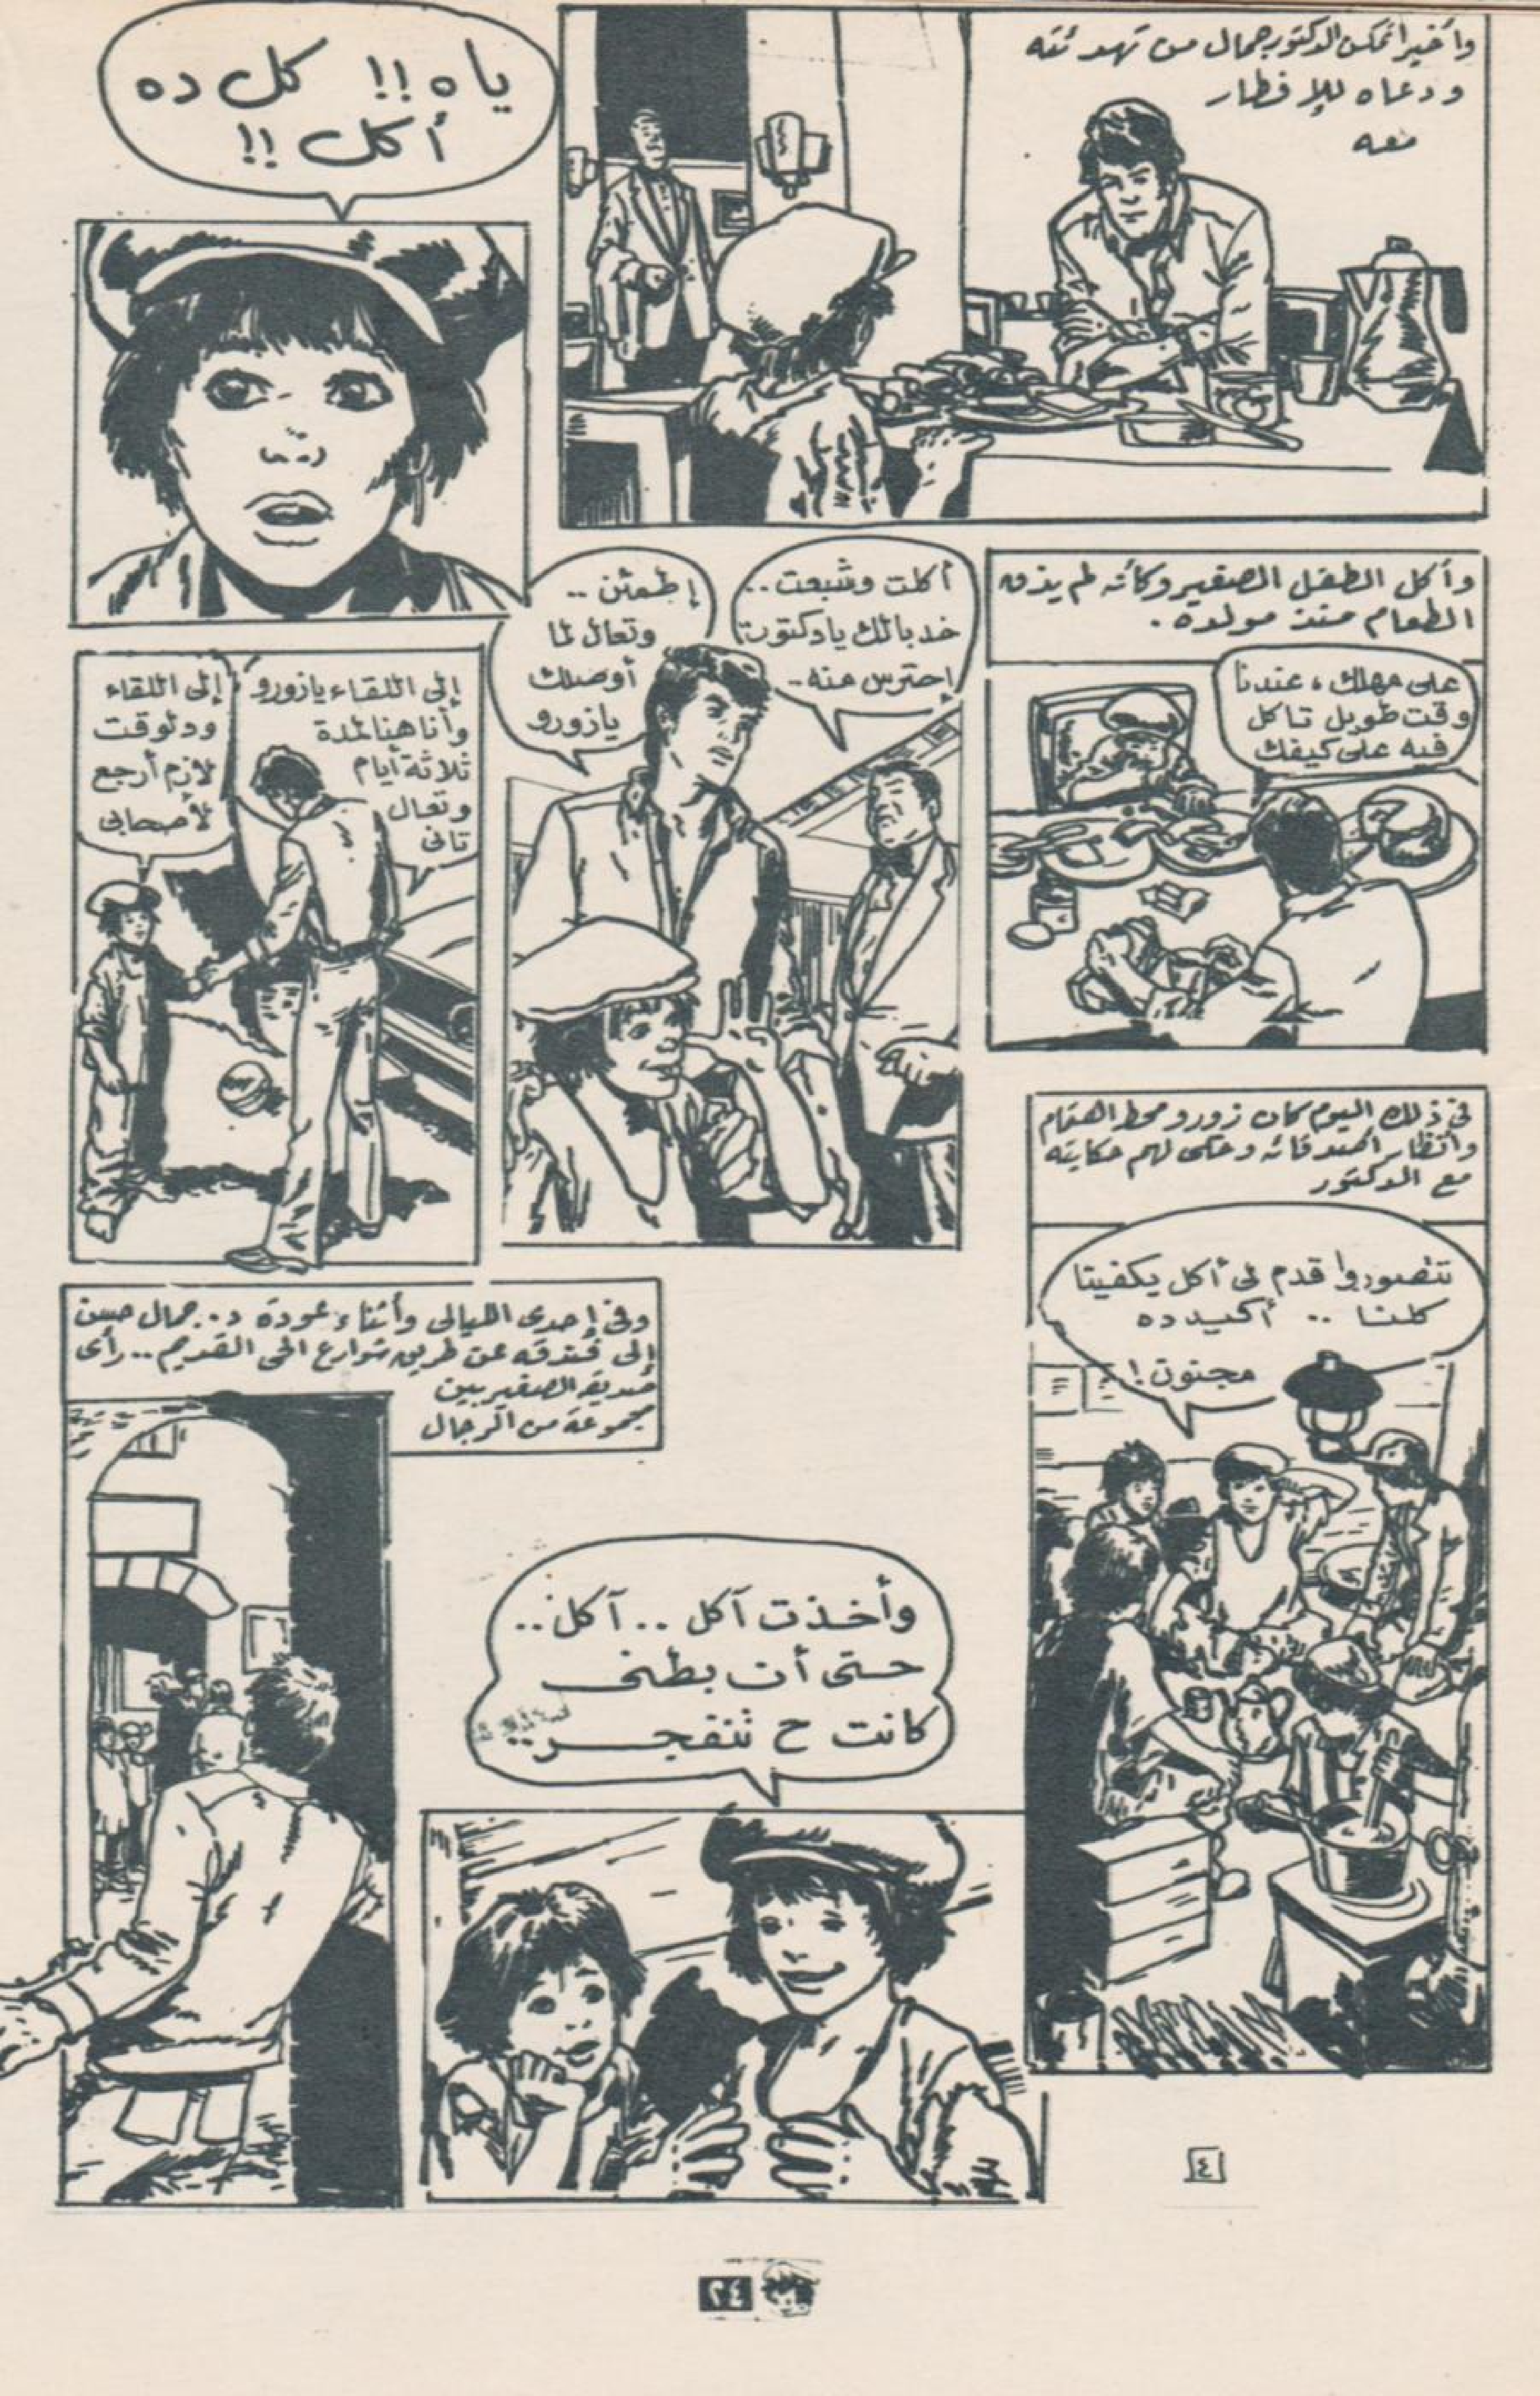 وأخيرا تمكن الدكتور جمال من تهدئته
ودعاه للإفطار
معه
ياه !! كل ده
أكل !!
وأكل الطفل الصغير وكأنه لم يذق
الطعام منذ مولده .
على مهلك ، عندنا
وقت طويل تاكل
فيه على كيفك
أكلت وشبعت ..
خد بالك يا دكتور
إحترس منه ..
إطمئن ..
وتعال لما
أوصلك
يا زورو
إلى اللقاء يا زورو
وأنا هنا لمدة
ثلاثة أيام
وتعال
تانى
إلى اللقاء
ودلوقت
لازم أرجع
لأصحابى
فى ذلك اليوم كان زورو محط اهتمام
وانتظار أصدقائه وحكى لهم حكايته
مع الدكتور
تتصوروا قدم لى أكل يكفينا
كلنا .. أكيد ده
مجنون !
وأخذت آكل .. آكل ..
حتى أن بطنى
كانت ح تنفجر ..
وفى إحدى الليالى وأثناء عودة د. جمال حسن
إلى فندقه عن طريق شوارع الحى القديم .. رأى
صديقه الصغير بين
مجموعة من الرجال
٤
٢٤